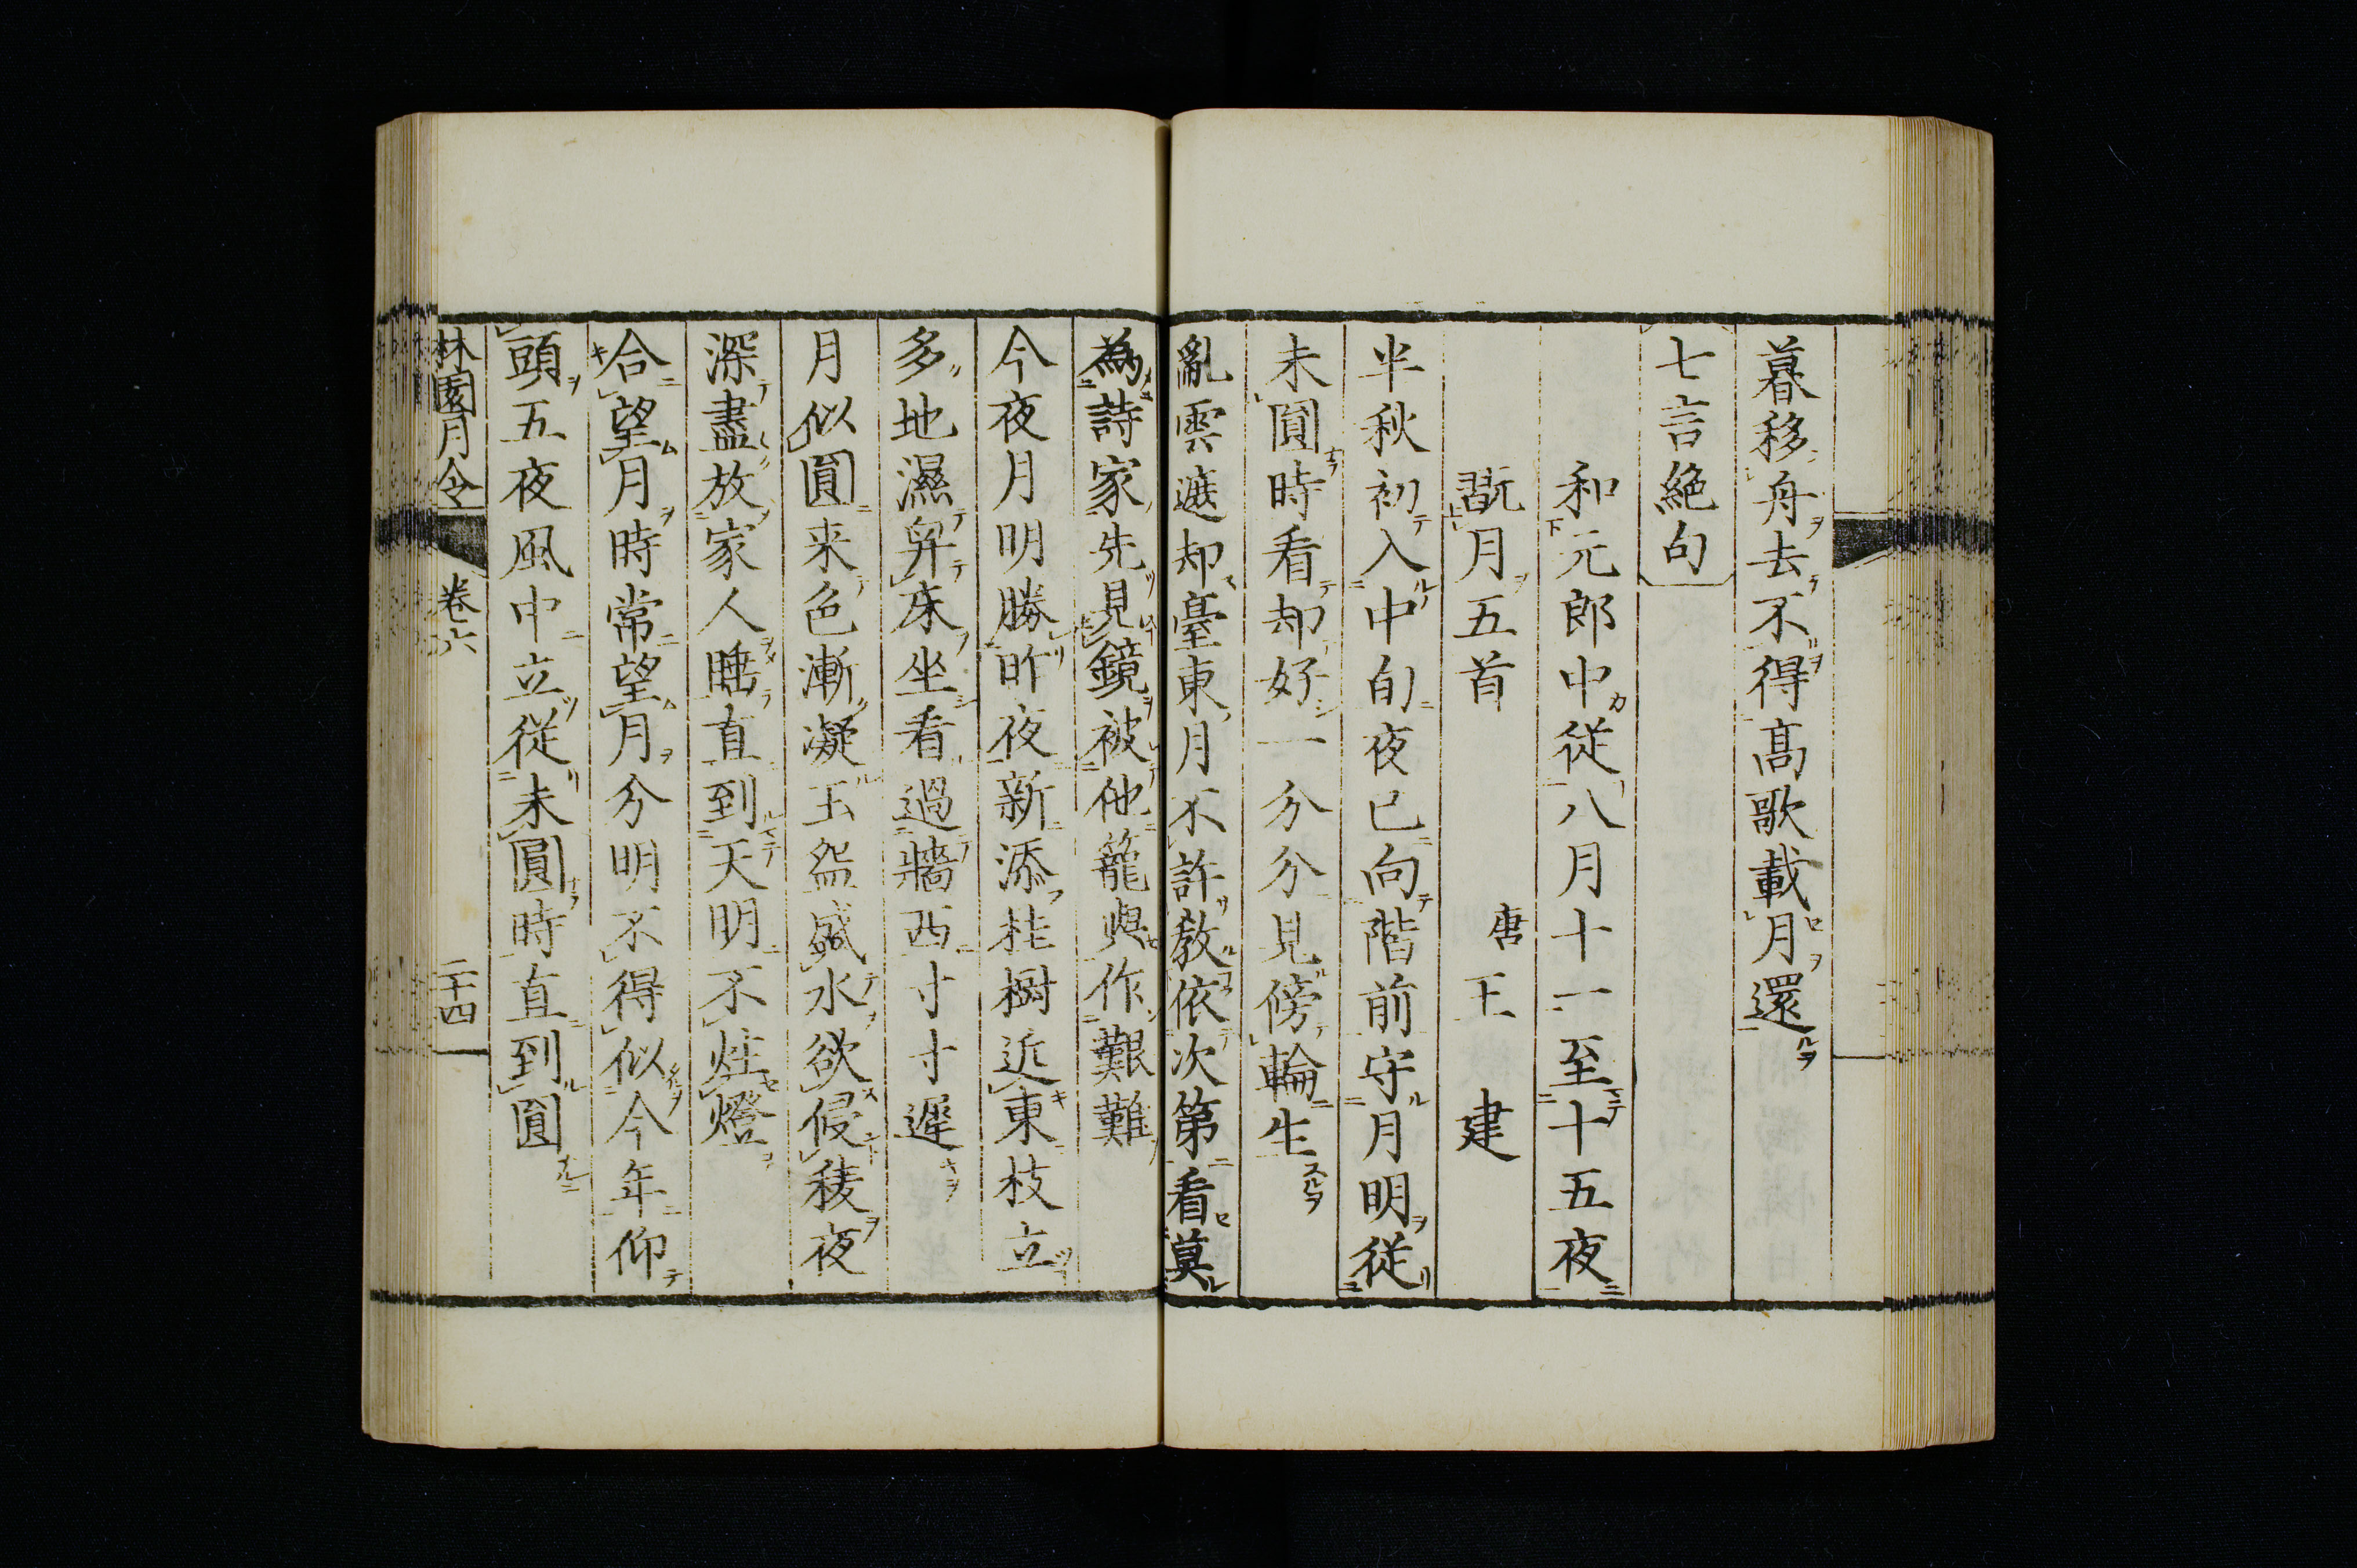 暮移舟去不得高歌載月還
七言絶句
和元郎中從八月十一至十五夜
翫月五首 唐 王建
半秋初入中旬夜已向階前守月明從
未圓時看却好一分分見傍輪生
亂雲遮却臺東月不許教依次第看莫
為詩家先見鏡被他籠與作艱難
今夜月明勝昨夜新添桂樹近東枝立
多地濕舁床坐看過牆西寸寸遲
月似圓来色漸凝玉盆盛水欲侵稜夜
深盡放家人睡直到天明不炷燈
合望月時常望月分明不得似今年仰
頭五夜風中立從未圓時直到圓
林園月令 卷六 二十四